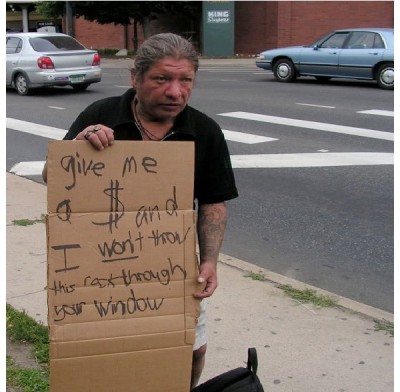 KING
Soopers
give me
a $ and
I won't throw
this rock through
your window